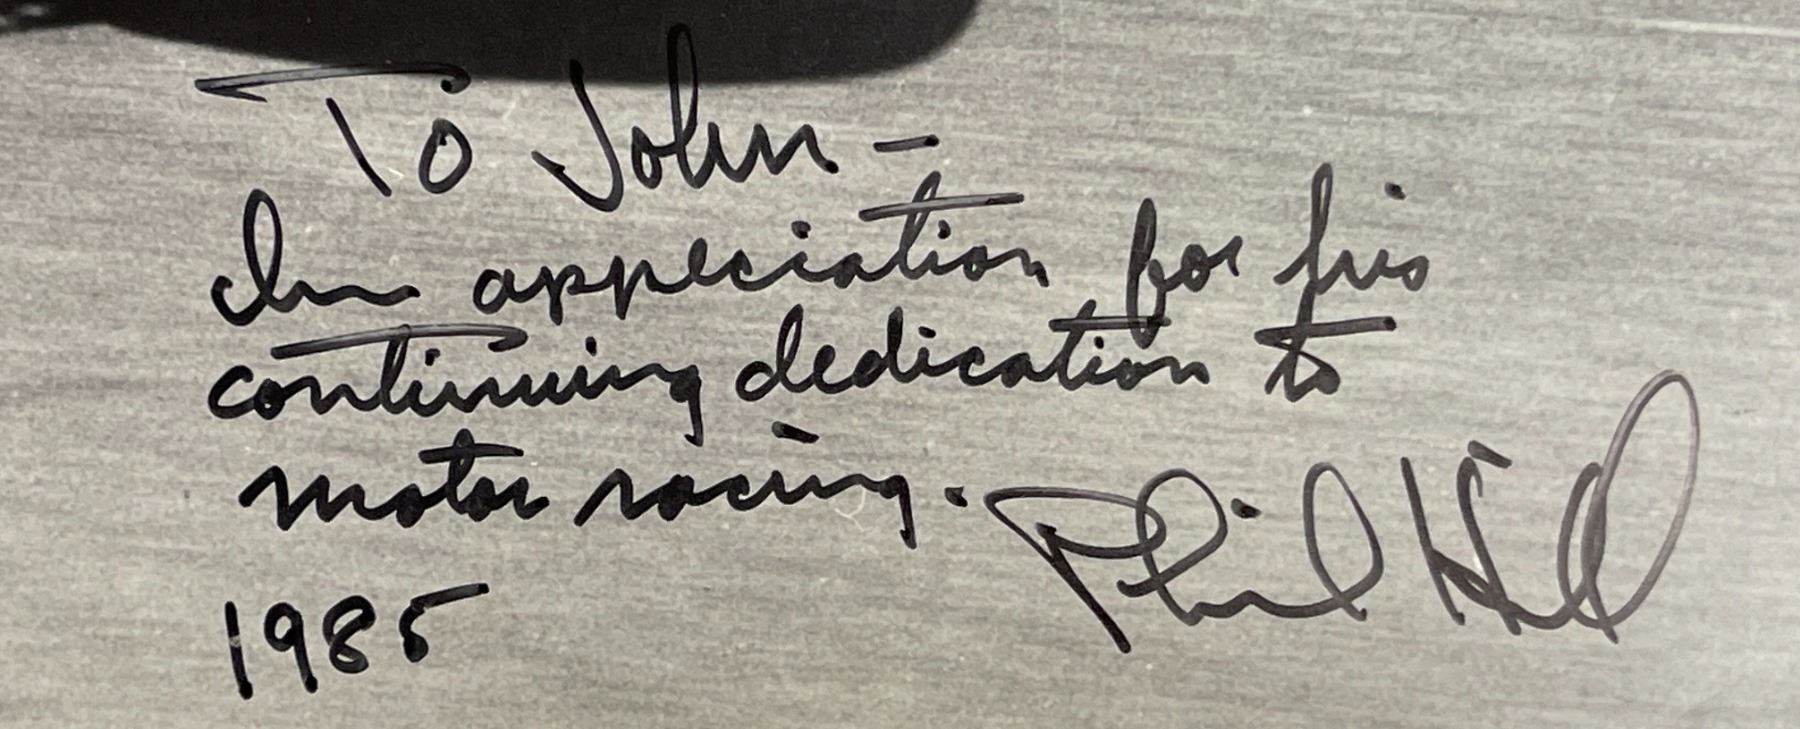 To John –
In appreciation for his
continuing dedication to
motor racing.
Phil Hill
1985